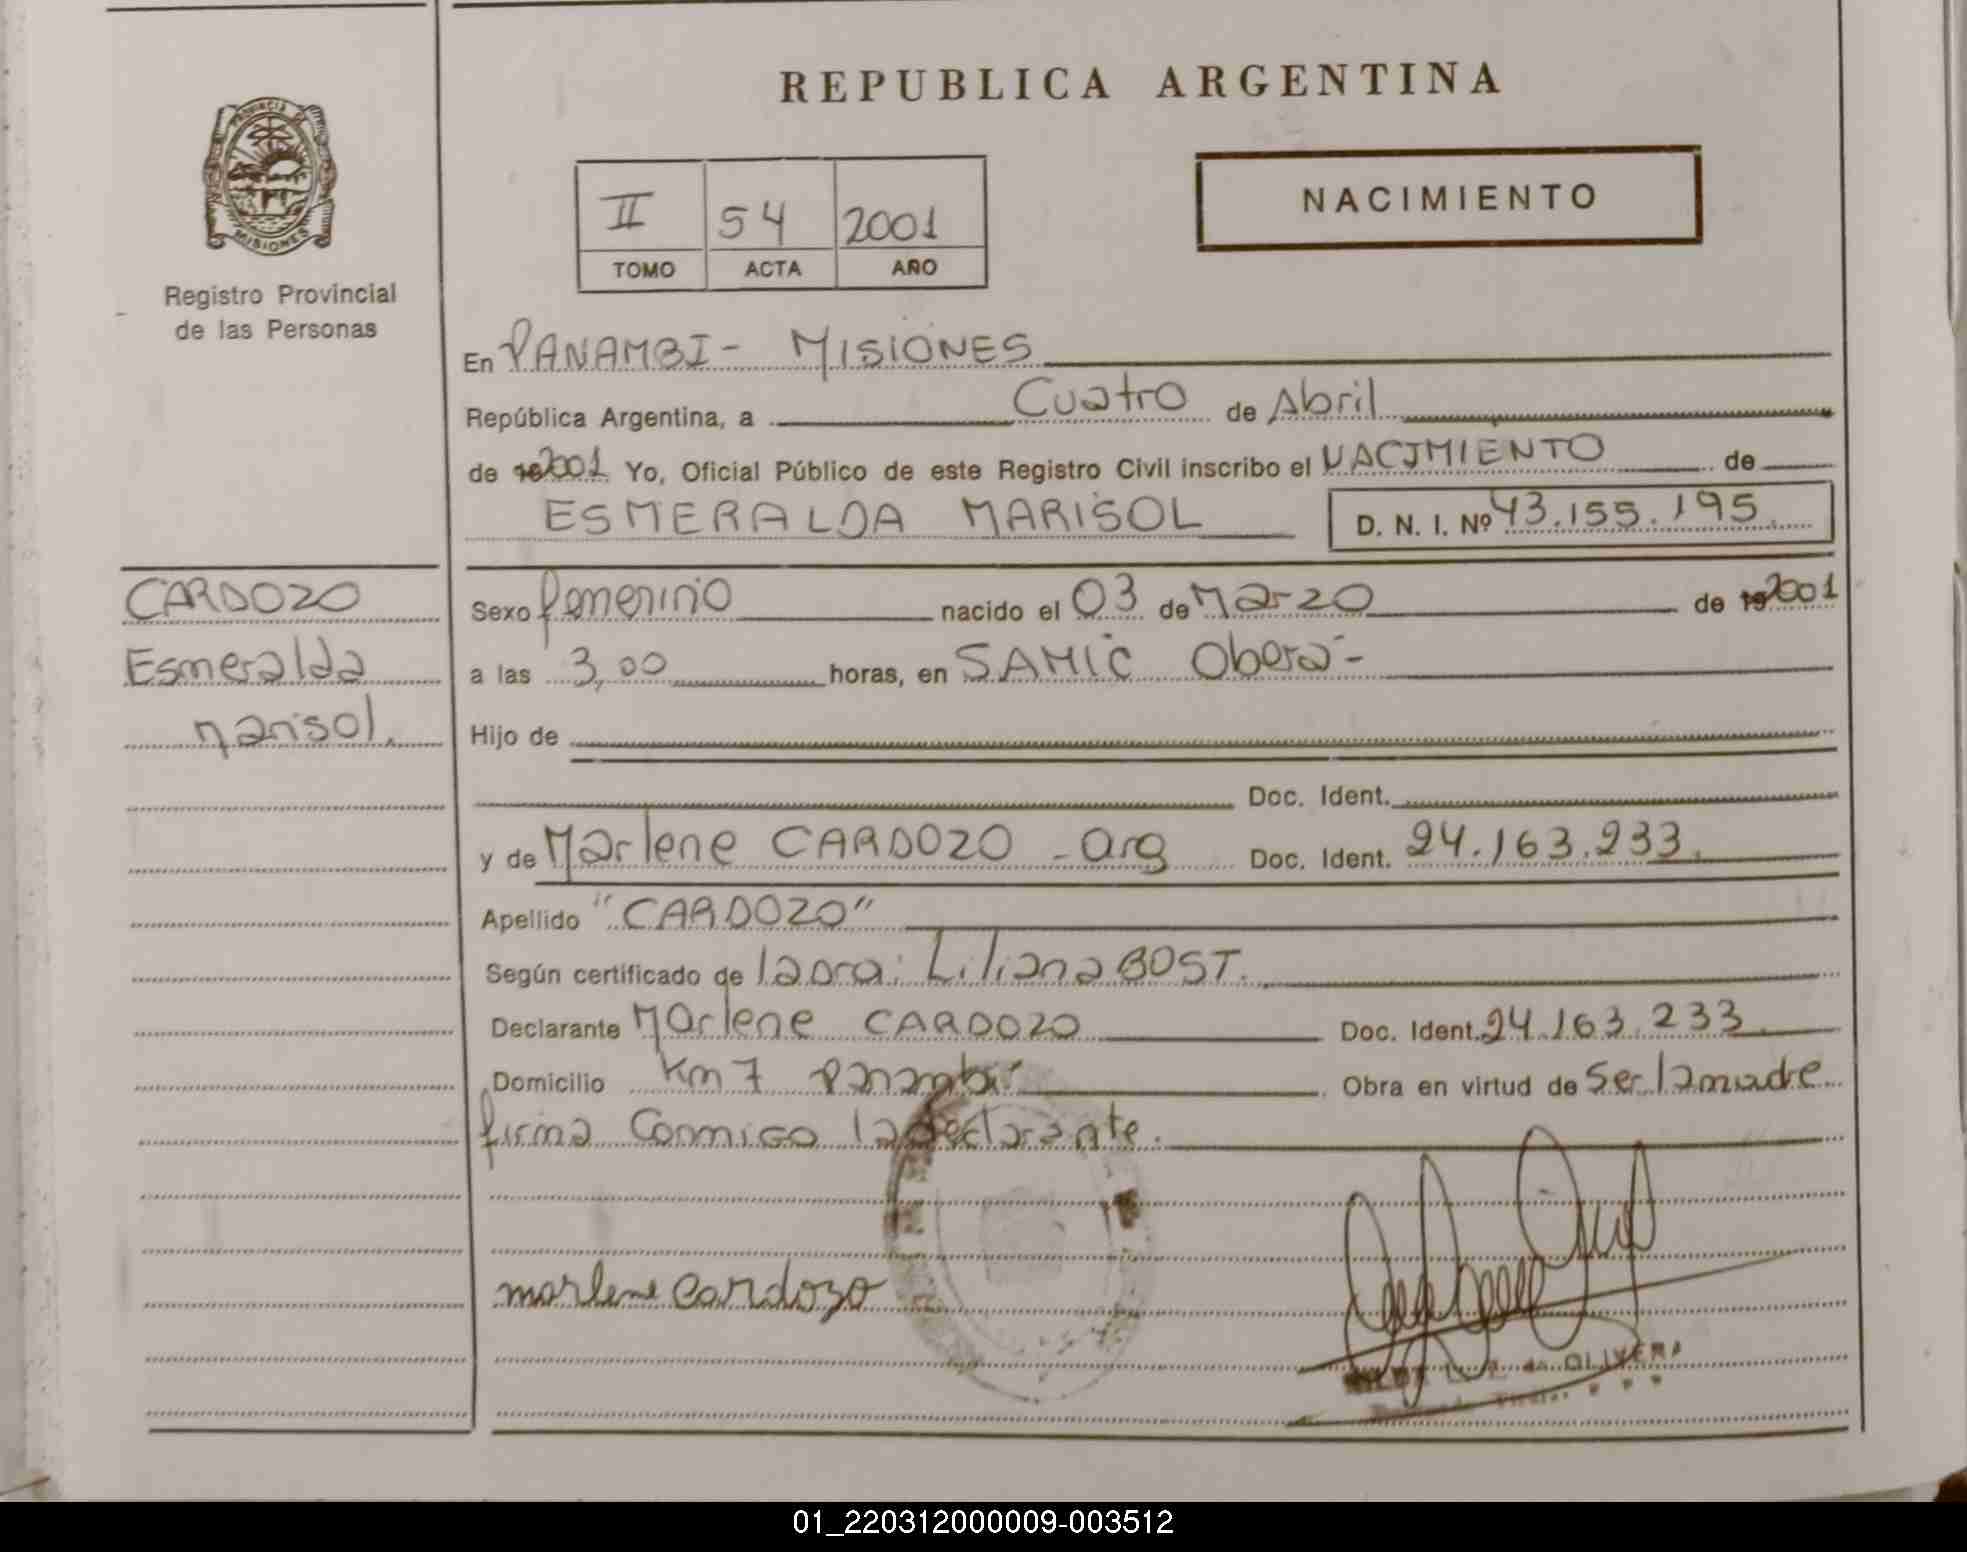 REPUBLICA ARGENTINA
PROVINCIA DE
MISIONES
Registro Provincial
de las Personas
II 54 2001
TOMO ACTA AÑO
NACIMIENTO
En PANAMBI - MISIONES
República Argentina, a Cuatro de Abril
de 2001 Yo, Oficial Público de este Registro Civil inscribo el NACIMIENTO de
ESMERALDA MARISOL D. N. I. Nº 43.155.195
CARDOZO
Esmeralda
Marisol.
Sexo femenino nacido el 03 de Marzo de 2001
a las 3,00 horas, en SAMIC Oberá-
Hijo de
Doc. Ident.
y de Marlene CARDOZO - arg Doc. Ident. 24.163.233.
Apellido "CARDOZO"
Según certificado de la Dra: Liliana BOST.
Declarante Marlene CARDOZO Doc. Ident. 24.163.233
Domicilio Km 7 Panambí Obra en virtud de Ser la madre
firma Conmigo la declarante.
marlene Cardozo
de OLIVERA
01_220312000009-003512